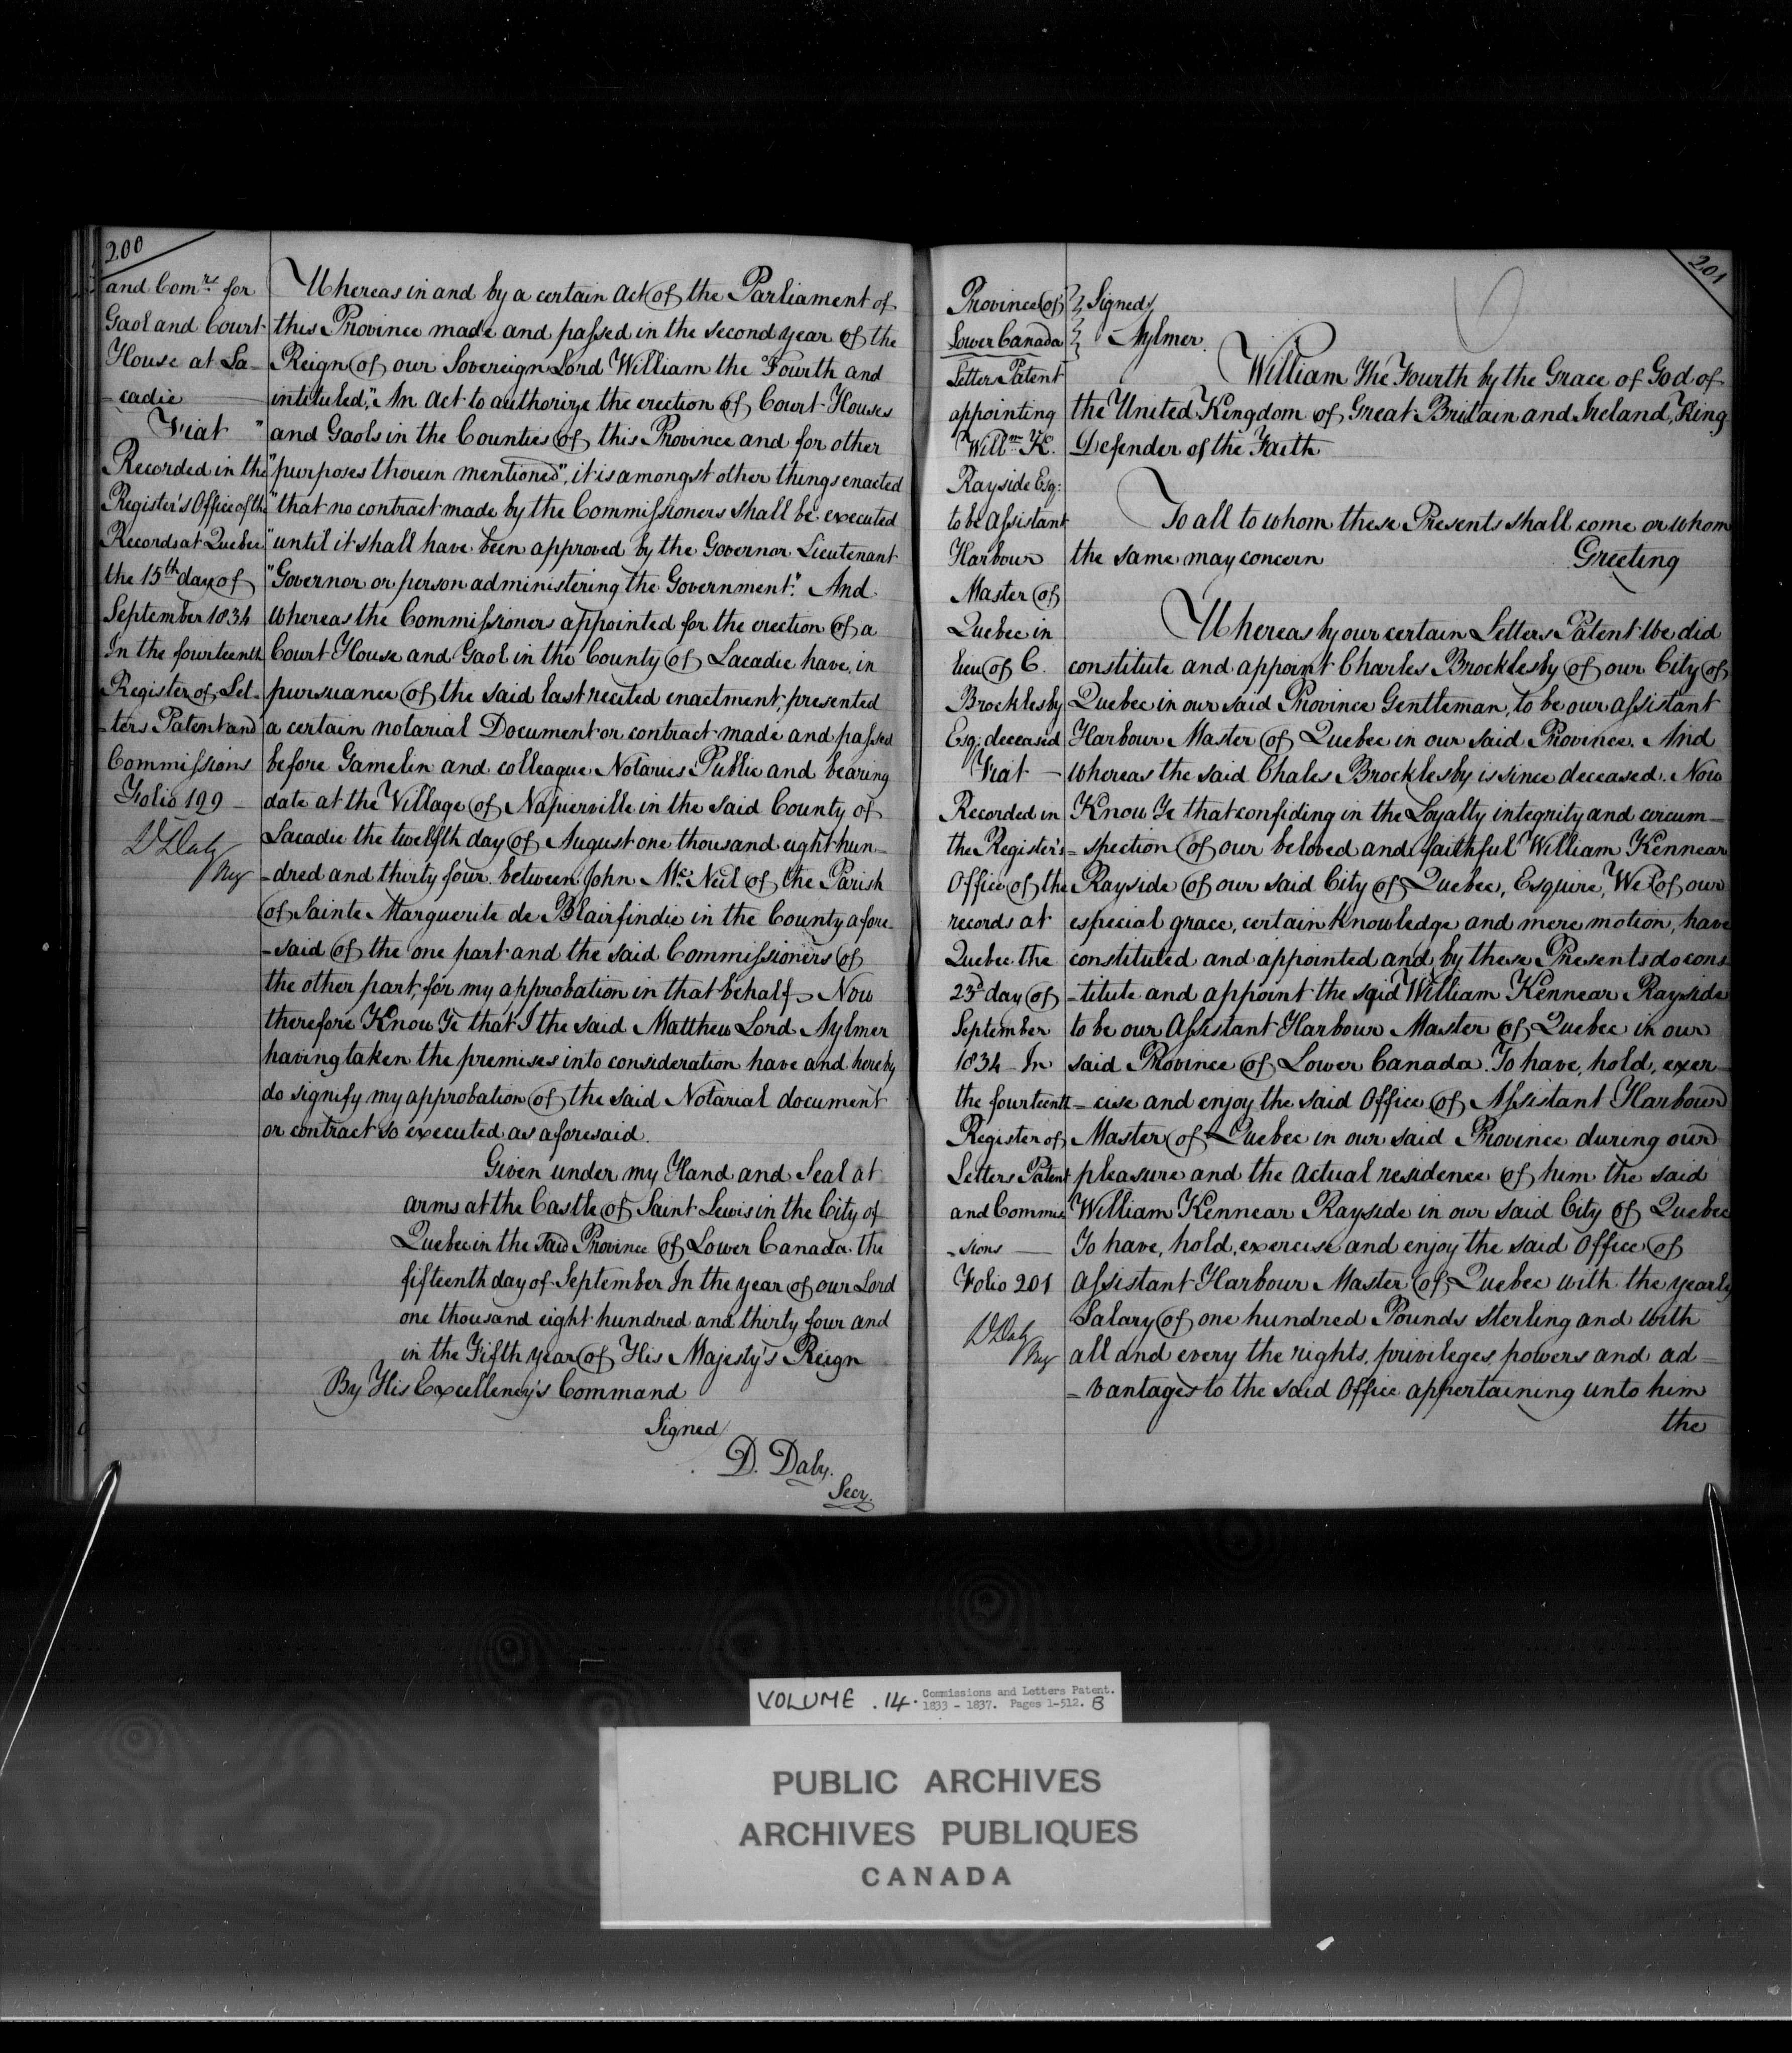 200
and Comrs for
Gaol and Court
House at La-
-cadie
Fiat "
Recorded in the
Register's Office of the
Records at Quebec
the 15th day of
September 1834
In the fourteenth
Register of Let-
-ters Patent and
Commissions
Folio 199 -
D Daly
Reg
Whereas in and by a certain Act of the Parliament of
this Province made and passed in the second year of the
Reign of our Sovereign Lord William the Fourth and
intituled, "An Act to authorize the erection of Court Houses
and Gaols in the Counties of this Province and for other
"purposes therein mentioned", it is amongst other things enacted
"that no contract made by the Commissioners shall be executed
"until it shall have been approved by the Governor Lieutenant
"Governor or person administering the Government." And
whereas the Commissioners appointed for the erection of a
Court House and Gaol in the County of Lacadie have, in
pursuance of the said last recited enactment, presented
a certain notarial Document or contract made and passed
before Gamelin and colleague Notaries Public and bearing
date at the Village of Napierville in the said County of
Lacadie the twelfth day of August one thousand eight hun-
-dred and thirty four between John Mc Neil of the Parish
of Sainte Marguerite de Blairfindie in the County afore-
-said of the one part and the said Commissioners of
the other part, for my approbation in that behalf - Now
therefore Know Ye that I the said Matthew Lord Aylmer
having taken the premises into consideration have and hereby
do signify my approbation of the said Notarial document
or contract so executed as aforesaid.
Given under my Hand and Seal at
arms at the Castle of Saint Lewis in the City of
Quebec in the said Province of Lower Canada the
fifteenth day of September In the year of our Lord
one thousand eight hundred and thirty four and
in the Fifth year of His Majesty's Reign
By His Excellency's Command
Signed
D. Daly.
Secy.
201
Province of
Lower Canada
Letters Patent
appointing
Willm K.
Rayside Esq:
to be Assistant
Harbour
Master of
Quebec in
lieu of C.
Brocklesby
Esq: deceased
Fiat -
Recorded in
the Register's
Office of the
records at
Quebec the
23d day of
September
1834 In
the fourteenth
Register of
Letters Patent
and Commis
-sions -
Folio 201
D Daly
Reg
Signed
Aylmer.
William The Fourth by the Grace of God of
the United Kingdom of Great Britain and Ireland, King
Defender of the Faith
To all to whom these Presents shall come or whom
the same may concern Greeting
Whereas by our certain Letters Patent We did
constitute and appoint Charles Brocklesby of our City of
Quebec in our said Province Gentleman, to be our assistant
Harbour Master of Quebec in our said Province. And
whereas the said Chales Brocklesby is since deceased. Now
Know Ye that confiding in the Loyalty integrity and circum-
-spection of our beloved and faithful William Kennear
Rayside of our said City of Quebec, Esquire, We of our
especial grace, certain knowledge and mere motion, have
constituted and appointed and by these Presents do cons
-titute and appoint the said William Kennear Rayside
to be our Assistant Harbour Master of Quebec in our
said Province of Lower Canada. To have, hold, exer-
-cise and enjoy the said Office of Assistant Harbour
Master of Quebec in our said Province during our
pleasure and the actual residence of him the said
William Kennear Rayside in our said City of Quebec
To have, hold, exercise and enjoy the said Office of
Assistant Harbour Master of Quebec with the yearly
Salary of one hundred Pounds sterling and with
all and every the rights, privileges, powers and ad-
-vantages to the said Office appertaining unto him
the
VOLUME .14. Commissions and Letters Patent.
1833 - 1837. Pages 1-512. B
PUBLIC ARCHIVES
ARCHIVES PUBLIQUES
CANADA